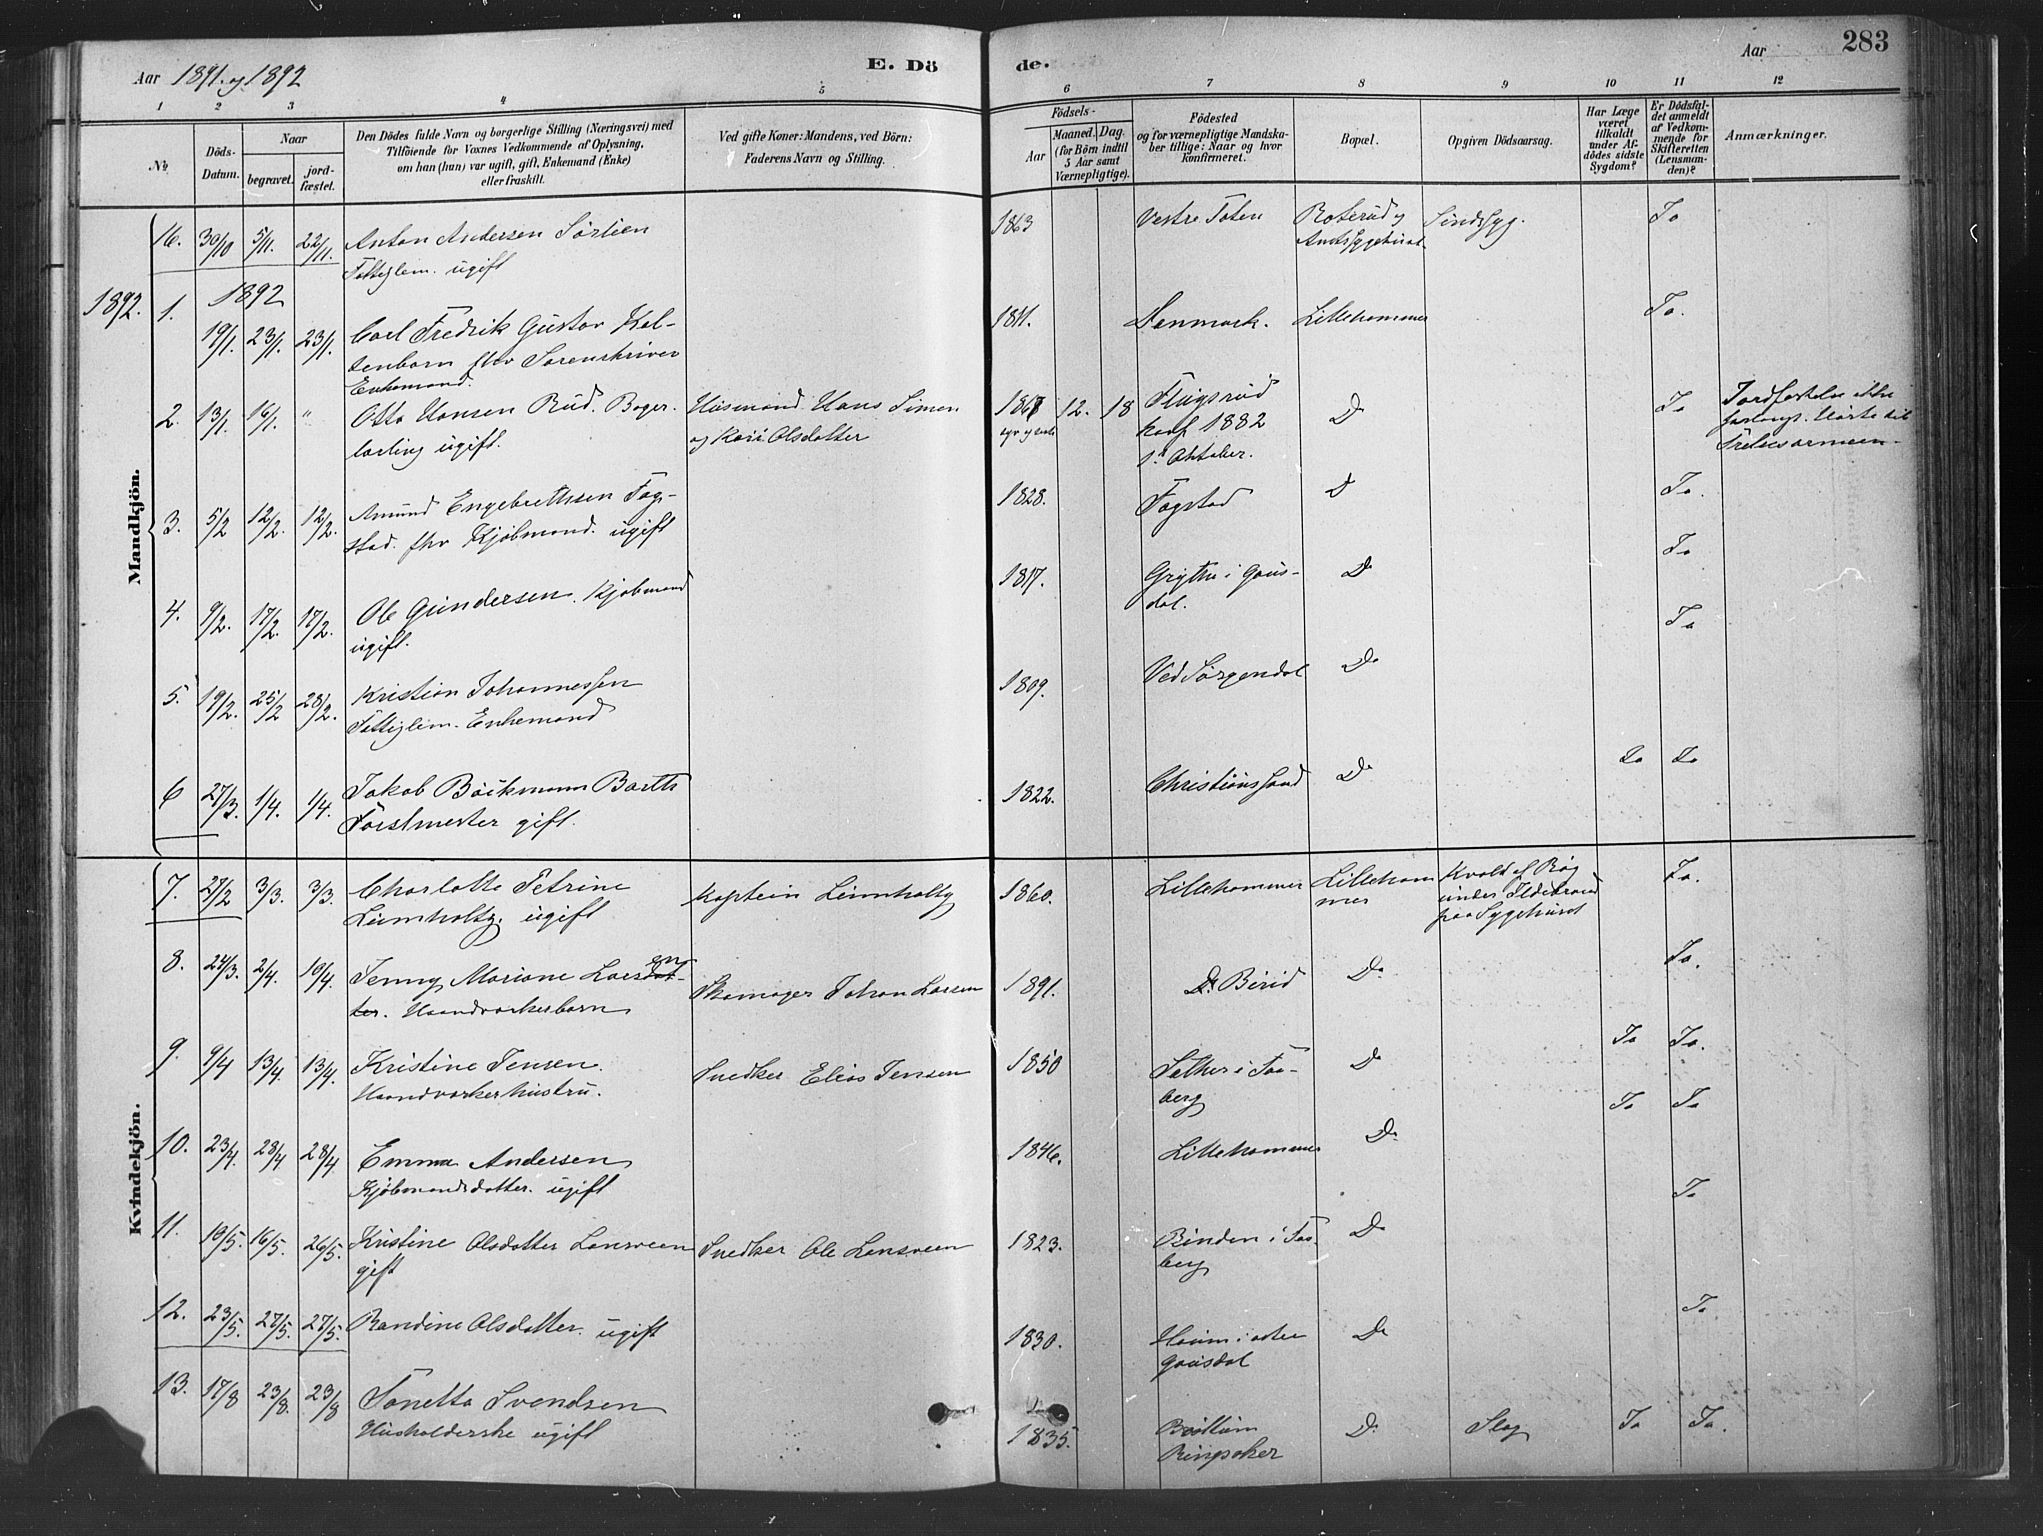 Aar 1891 og 1892
E. Dö
de.
Aar
283
1
2
3
4
5
6
7
8
9
10
11
12
No
Döds-
Datum.
Naar
begravet.
jord-
fæstet.
Den Dödes fulde Navn og borgerlige Stilling (Næringsvei) med
Tilföiende for Voxnes Vedkommende af Oplysning,
om han (hun) var ugift, gift, Enkemand (Enke)
eller fraskilt.
Ved gifte Koner: Mandens, ved Börn:
Faderens Navn og Stilling.
Födsels-
Aar
Maaned.
Dag.
(for Börn indtil
5 Aar samt
Værnepligtige).
Födested
og for værnepligtige Mandska-
ber tillige: Naar og hvor
konfirmeret.
Bopæl.
Opgiven Dödsaarsag.
Har Læge
været
tilkaldt
under Af-
dödes sidste
Sygdom?
Er Dödsfal-
det anmeldt
af Vedkom-
mende for
Skifteretten
(Lensman-
den)?
Anmærkninger.
Mandkjön.
16. 30/10 5/11. 22/11. Anton Andersen Sørlien 1863 Vestre Toten Roterud og Sindssyg. Ja
Fattiglem. ugift Amtssygehuset
1892. 1. 1892
19/1. 23/1. 23/1. Carl Fredrik Gustav Kal- 1811. Danmark. Lillehammer Ja.
tenborn fhv Sorenskriver
Enkemand.
2. 13/1. 16/1. " Otto Hansen Rud. Bager- Husmand Hans Simen 1867 12. 18 Flugsrud Do Ja
lærling ugift. og Kari Olsdatter konf 1882
1ste Oktober.
Frelsesarmeen
3. 5/2 12/2. 12/2. Amund Engebrethsen Fog- 1828. Fogstad Do Ja.
stad. fhv Kjøbmand. ugift
4. 9/2. 17/2. 17/2. Ole Gundersen. Kjøbmand 1817. Grythe i Gaus- Do Ja
ugift. dal.
5. 19/2. 25/2 28/2. Kristian Johannessen 1809. Ved Sørgendal Do Ja
Fattiglem. Enkemand
6 27/3. 1/4. 1/4. Jakob Böckmann Barth 1822. Christianssand Do Ja Ja
Forstmester gift.
Kvindekjön.
7. 27/2 3/3. 3/3. Charlotte Petrine Kaptein Lumholtz 1860. Lillehammer Lilleham Kvalt af Røg Ja.
Lumholtz. ugift mer under Ildebrand
paa Sygehuset
8. 27/3. 2/4. 10/4. Jenny Mariane Larsdat- en Skomager Johan Larsen 1891. Do Birid Do Ja.
ter. Haandværkerbarn
9. 9/4 13/4. 13/4. Kristine Jensen. Snedker Elias Jensen 1850 Sether i Faa- Do Ja Ja.
Haandværkerhustru. berg
10. 23/4. 28/4 28/4. Emma Andersen 1846. Lillehammer Do Ja Ja
Kjøbmandsdatter. ugift
11. 10/5. 16/5. 26/5. Kristine Olsdatter Lansveen Snedker Ole Lansveen 1823. Rinden i Faa- Do Ja
gift berg
12. 23/5. 27/5. 27/5. Randine Olsdatter. ugift 1830. Haum i østre Do Ja
Gausdal
13. 17/8 23/8. 23/8 Tonetta Svendsen 1835. Brøttum Do Slag Ja Ja.
Husholderske ugift Ringsaker